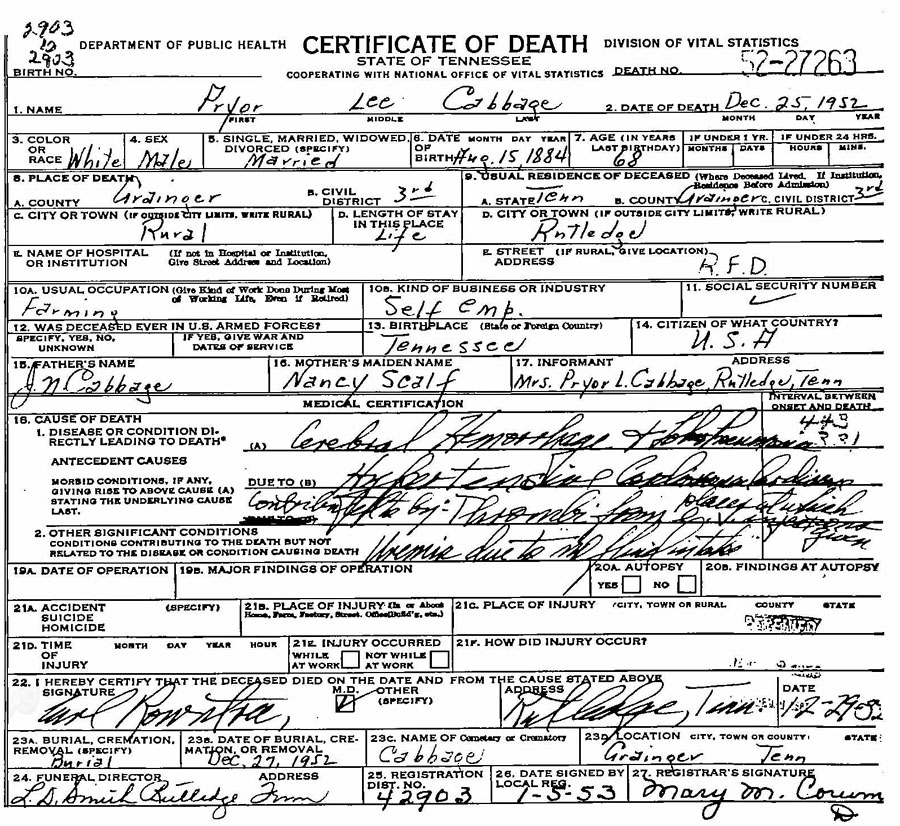 2903
10
2903
BIRTH NO.
DEPARTMENT OF PUBLIC HEALTH CERTIFICATE OF DEATH DIVISION OF VITAL STATISTICS
STATE OF TENNESSEE
COOPERATING WITH NATIONAL OFFICE OF VITAL STATISTICS DEATH NO. 52-27263
1. NAME Pryor Lee Cabbage 2. DATE OF DEATH Dec. 25, 1952
FIRST MIDDLE LAST MONTH DAY YEAR
3. COLOR OR RACE White 4. SEX Male 5. SINGLE, MARRIED, WIDOWED, DIVORCED (SPECIFY) Married 6. DATE OF BIRTH MONTH DAY YEAR Aug. 15, 1884 7. AGE (IN YEARS LAST BIRTHDAY) 68 IF UNDER 1 YR. MONTHS DAYS IF UNDER 24 HRS. HOURS MINS.
8. PLACE OF DEATH
A. COUNTY Grainger B. CIVIL DISTRICT 3rd
9. USUAL RESIDENCE OF DECEASED (Where Deceased Lived. If Institution, Residence Before Admission)
A. STATE Tenn B. COUNTY Grainger C. CIVIL DISTRICT 3rd
C. CITY OR TOWN (IF OUTSIDE CITY LIMITS, WRITE RURAL) Rural
D. LENGTH OF STAY IN THIS PLACE Life
D. CITY OR TOWN (IF OUTSIDE CITY LIMITS, WRITE RURAL) Rutledge
E. NAME OF HOSPITAL OR INSTITUTION (If not in Hospital or Institution, Give Street Address and Location)
E. STREET ADDRESS (IF RURAL, GIVE LOCATION) R.F.D.
10A. USUAL OCCUPATION (Give Kind of Work Done During Most of Working Life, Even if Retired) Farming
10B. KIND OF BUSINESS OR INDUSTRY Self emp.
11. SOCIAL SECURITY NUMBER
12. WAS DECEASED EVER IN U.S. ARMED FORCES?
SPECIFY, YES, NO, UNKNOWN IF YES, GIVE WAR AND DATES OF SERVICE
13. BIRTHPLACE (State or Foreign Country) Tennessee
14. CITIZEN OF WHAT COUNTRY? U.S.A
15. FATHER'S NAME J.N. Cabbage
16. MOTHER'S MAIDEN NAME Nancy Scalf
17. INFORMANT ADDRESS Mrs. Pryor L. Cabbage, Rutledge, Tenn
MEDICAL CERTIFICATION
INTERVAL BETWEEN ONSET AND DEATH
443
331
18. CAUSE OF DEATH
1. DISEASE OR CONDITION DIRECTLY LEADING TO DEATH* (A) Cerebral Hemorrhage +
ANTECEDENT CAUSES
MORBID CONDITIONS, IF ANY, GIVING RISE TO ABOVE CAUSE (A) STATING THE UNDERLYING CAUSE LAST.
DUE TO (B) Hypertensive
by: Thrombi from places at which
I.V. injections given
2. OTHER SIGNIFICANT CONDITIONS
CONDITIONS CONTRIBUTING TO THE DEATH BUT NOT RELATED TO THE DISEASE OR CONDITION CAUSING DEATH
Uremia due to no fluid intake
19A. DATE OF OPERATION 19B. MAJOR FINDINGS OF OPERATION 20A. AUTOPSY YES NO 20B. FINDINGS AT AUTOPSY
21A. ACCIDENT SUICIDE HOMICIDE (SPECIFY) 21B. PLACE OF INJURY (In or About Home, Farm, Factory, Street, Office Build'g, etc.) 21C. PLACE OF INJURY (CITY, TOWN OR RURAL COUNTY STATE
21D. TIME OF INJURY MONTH DAY YEAR HOUR 21E. INJURY OCCURRED WHILE AT WORK NOT WHILE AT WORK 21F. HOW DID INJURY OCCUR?
22. I HEREBY CERTIFY THAT THE DECEASED DIED ON THE DATE AND FROM THE CAUSE STATED ABOVE
SIGNATURE M.D. OTHER (SPECIFY) ADDRESS Rutledge, Tenn. DATE 12-29-52
23A. BURIAL, CREMATION, REMOVAL (SPECIFY) Burial
23B. DATE OF BURIAL, CREMATION, OR REMOVAL Dec. 27, 1952
23C. NAME OF Cemetery or Crematory Cabbage
23D. LOCATION CITY, TOWN OR COUNTY STATE Grainger Tenn
24. FUNERAL DIRECTOR ADDRESS L.D. Smith Rutledge Tenn
25. REGISTRATION DIST. NO. 42903
26. DATE SIGNED BY LOCAL REG. 1-5-53
27. REGISTRAR'S SIGNATURE Mary M. Corum
D